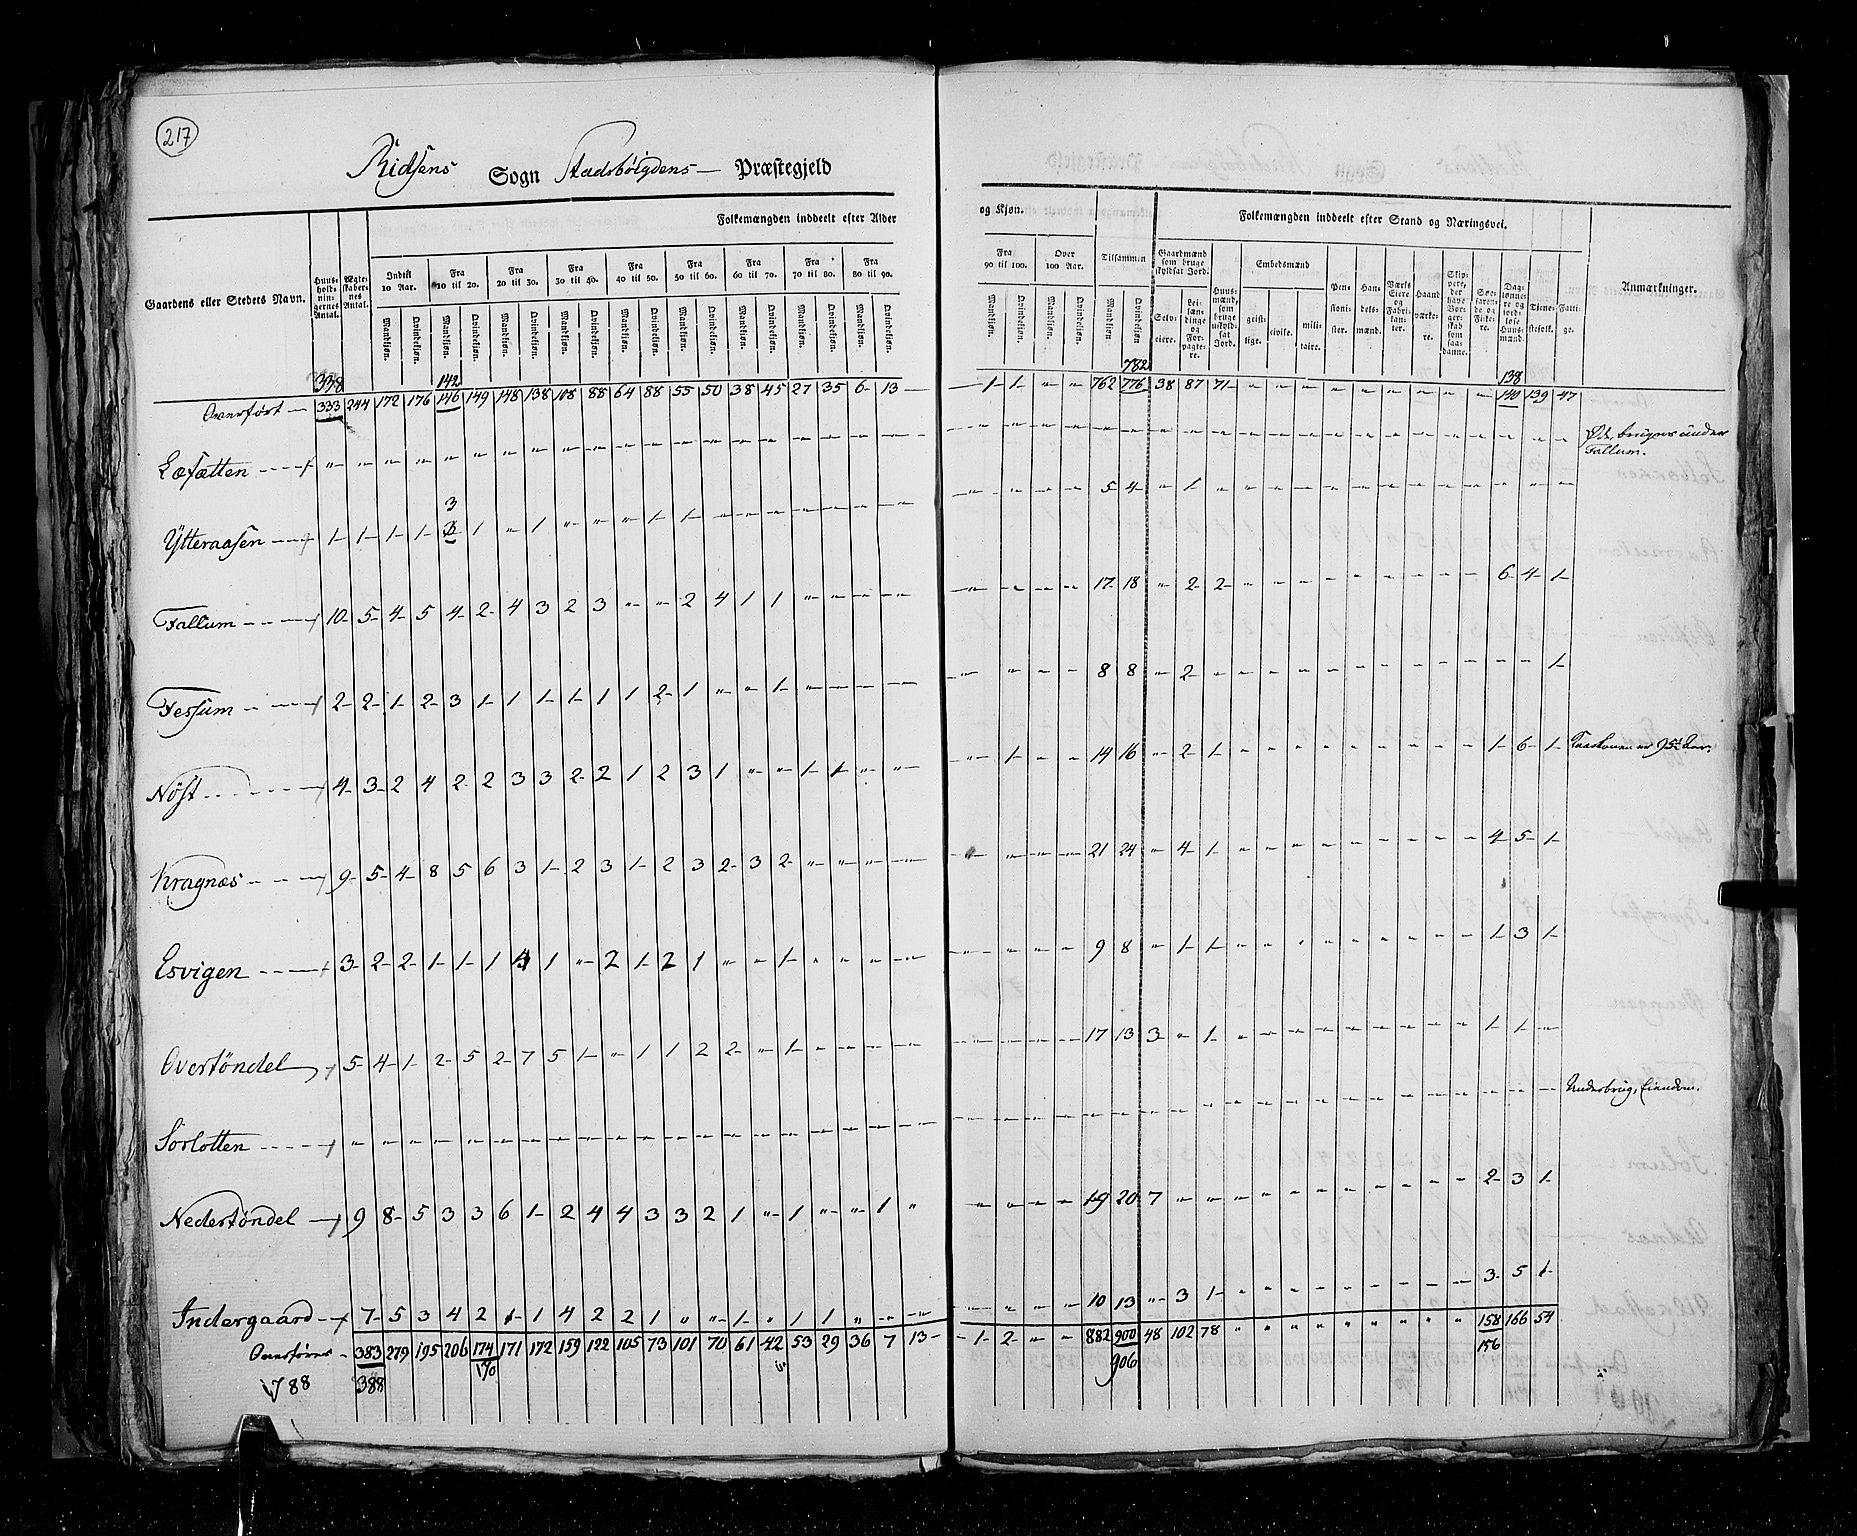 217
Ridsens Sogn Stadsbøigdens — Præstegjeld
Gaardens eller Stedets Navn.
Huusholdningernes Antal.
Ægteskabernes Antal.
Folkemængden inddeelt efter Alder og Kjøn.
Folkemængden inddeelt efter Stand og Næringsvei.
Anmærkninger.
Indtil 10 Aar. Fra 10 til 20. Fra 20 til 30. Fra 30 til 40. Fra 40 til 50. Fra 50 til 60. Fra 60 til 70. Fra 70 til 80. Fra 80 til 90. Fra 90 til 100. Over 100 Aar. Tilsammen
Gaardmænd som bruge skyldsat Jord. Embedsmænd
Mandkjøn. Qvindekjøn. Mandkjøn. Qvindekjøn. Mandkjøn. Qvindekjøn. Mandkjøn. Qvindekjøn. Mandkjøn. Qvindekjøn. Mandkjøn. Qvindekjøn. Mandkjøn. Qvindekjøn. Mandkjøn. Qvindekjøn. Mandkjøn. Qvindekjøn. Mandkjøn. Qvindekjøn. Mandkjøn. Qvindekjøn. Mandkjøn. Qvindekjøn.
Selveiere. Leilændinge og Forpagtere. Huusmænd, som bruge uskyldsat Jord. geistlige. civile. militaire. Pensionister. Handelsmænd. Værks Eiere og Fabrikanter. Haandværkere. Skippere, der have Borgerskab som saadanne. Søefarende og Fiskere. Daglønnere og jordløse Huusmænd. Tienestefolk. Fattige.
338 142 782 138
Overført — 333 244 172 176 146 149 148 138 108 88 64 88 55 50 38 45 27 35 6 13 1 1 " " 762 776 38 87 71 " " " " " " " " " 140 139 47
Løsætten " " " " " " " " " " " " " " " " " " " " " " " " " " " " " " " " " " " " " " " " " Øde, bruges under Fallum.
3
Ytteraasen 1 1 1 1 3 1 " 1 " " " 1 1 " " " " " " " " " " " 5 4 " 1 " " " " " " " " " " " " "
Fallum 10 5 4 5 4 2 4 3 2 3 " " 2 4 1 1 " " " " " " " " 17 18 " 2 2 " " " " " " " " " 6 4 1
Fessum 2 2 1 2 3 1 1 1 1 1 1 2 1 " " 1 " " " " " " " " 8 8 " 2 " " " " " " " " " " " " 1
Nøst 4 3 2 4 2 2 3 3 2 2 1 2 3 1 " " 1 1 " " " 1 " " 14 16 " 2 1 " " " " " " " " " 1 6 1
Kragnæs 9 5 4 8 5 6 3 1 2 3 1 2 3 2 3 2 " " " " " " " " 21 24 " 4 1 " " " " " " " " " 4 5 1
Esvigen 3 2 2 1 1 1 3 1 " 2 1 2 1 " " 1 " " " " " " " " 9 8 " 1 1 " " " " " " " " " 1 3 1
Overtøndel 5 4 1 2 5 2 7 5 1 " 1 1 2 2 " 1 " " " " " " " " 17 13 3 " 1 " " " " " " " " " 1 1 "
Sørlotten " " " " " " " " " " " " " " " " " " " " " " " " " " " " " " " " " " " " " " " " " Underbrug, Eiendom.
Nedertøndel 9 8 5 3 3 6 1 2 4 4 3 3 2 1 " 1 " " 1 " " " " " 19 20 7 " " " " " " " " " " " 2 3 1
Indergaard 7 5 3 4 2 1 1 4 2 2 1 " " 1 " 1 1 " " " " " " " 10 13 " 3 1 " " " " " " " " " 3 5 1
Overføres 383 279 195 206 174 171 172 159 122 105 73 101 70 61 42 53 29 36 7 13 1 2 " " 882 900 48 102 78 " " " " " " " " " 158 166 54
1788 388 170 906 156